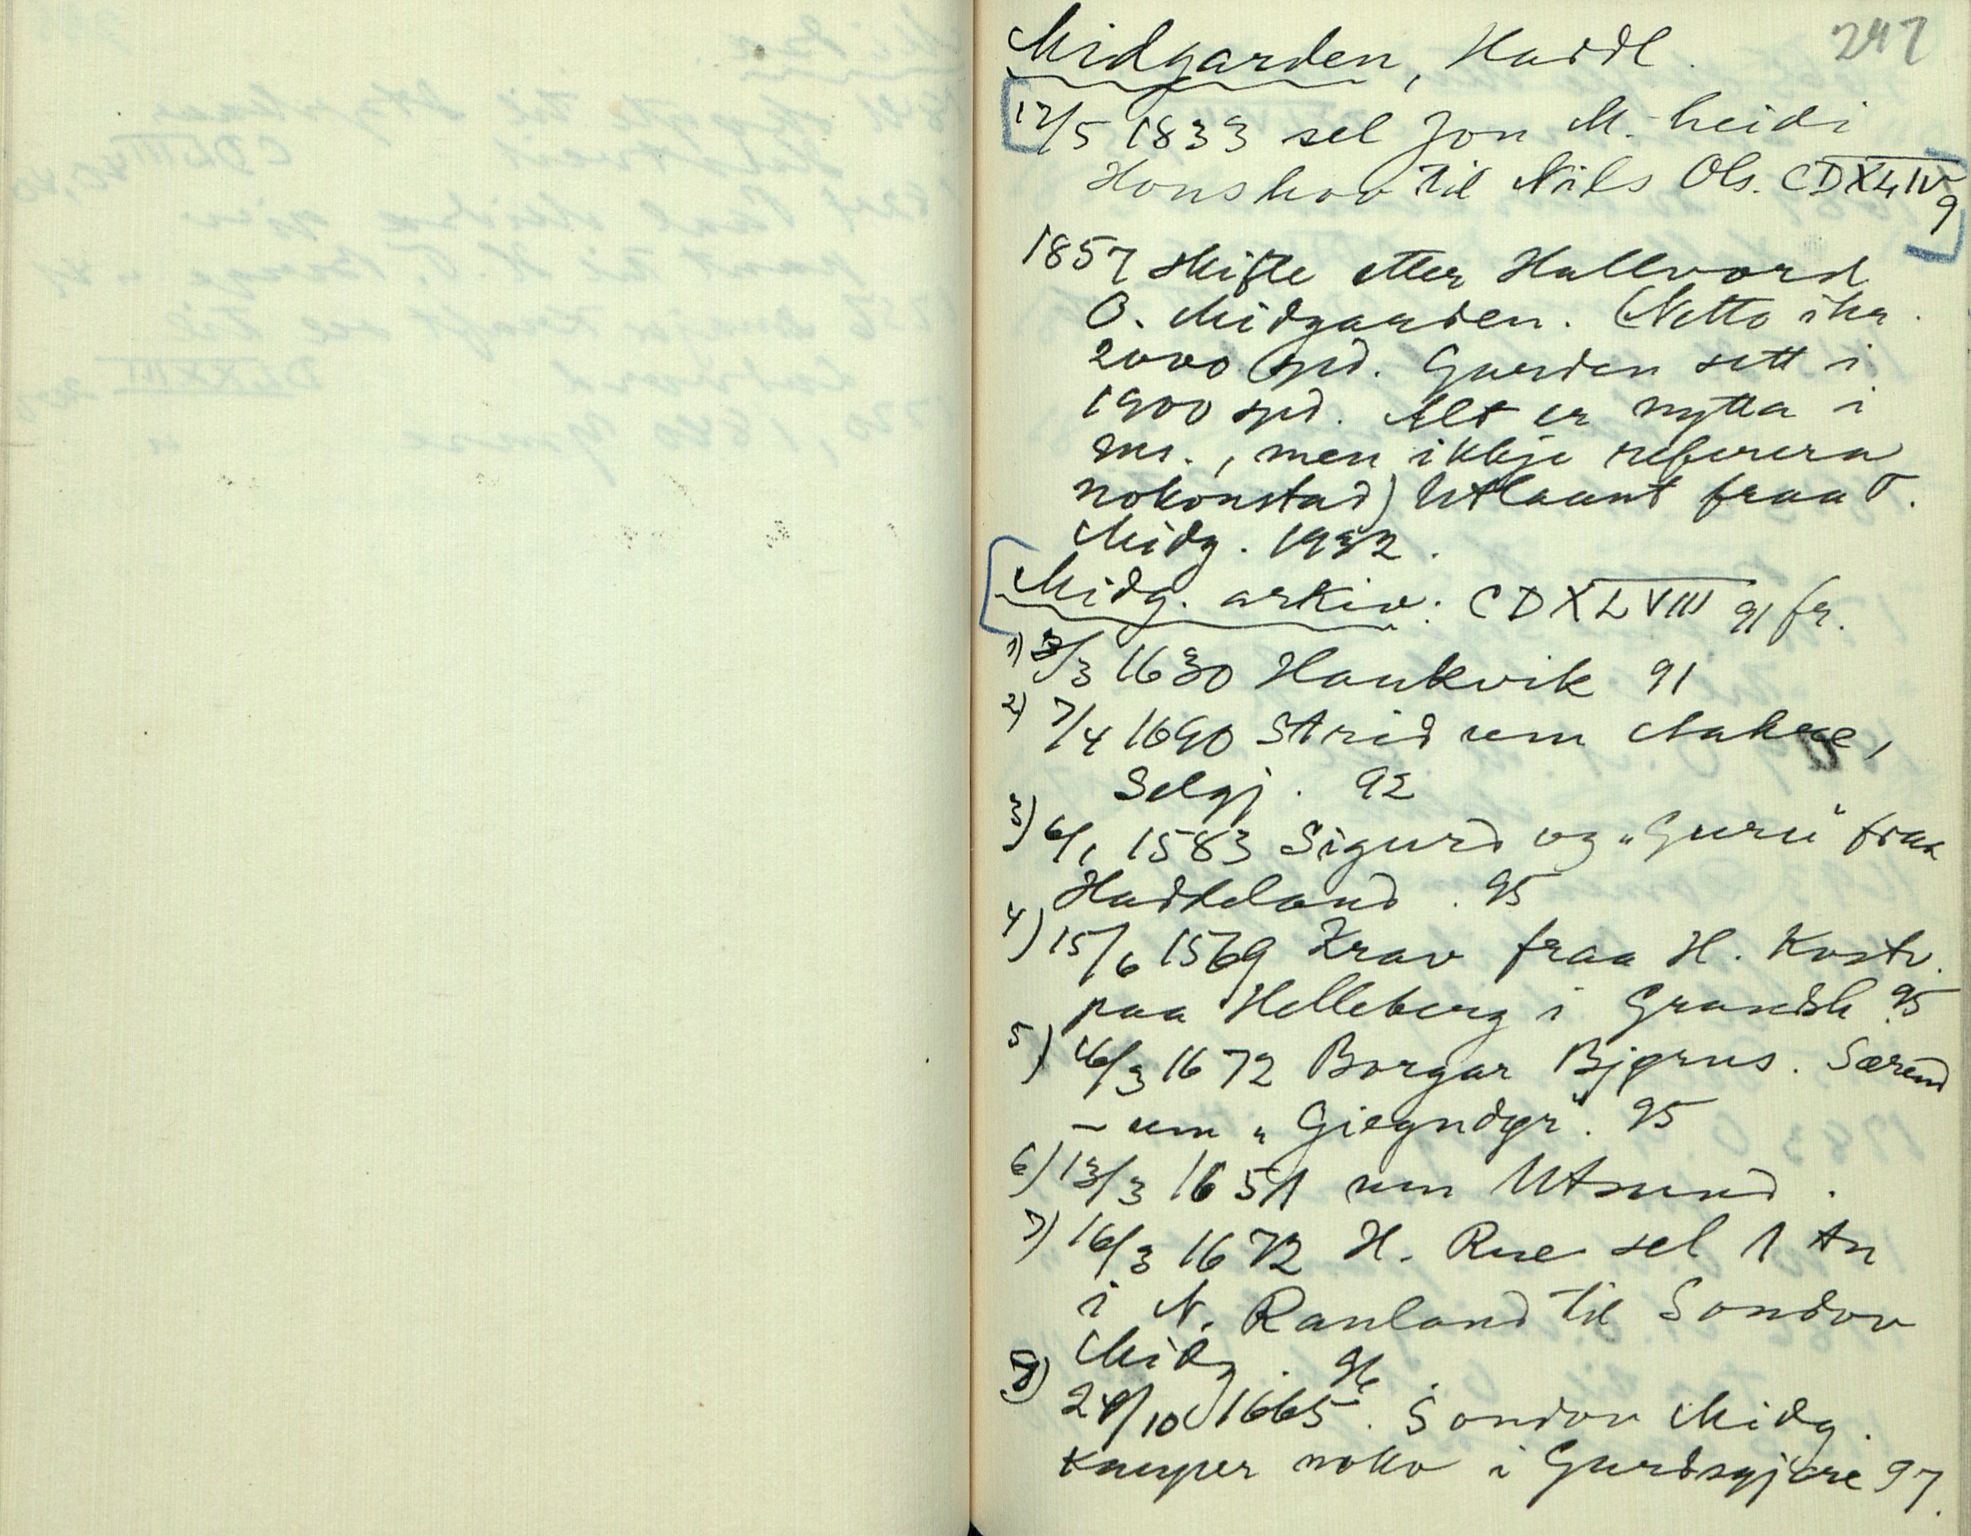 247
Midgarden, Haddl.
12/5 1833 sel Jon M. heidi
Honskov til Nils Ols. CDXLIV 9
1857 skifte etter Hallvord
O. Midgarden. (Netto ikr.
2000 spd. Garden sett i
1900 spd. Alt er nytta i
mr., men ikkje referera
nokonstad) Utlaant fraa O.
Midg. 1932.
Midg. arkiv: CDXLVIII 91 fr.
1) 3/3 1630 Haukvik 91
2) 7/4 1690 Strid um
Selgj. 92
3) 6/1 1583 Sigurd og „Guru" fraa
Haddeland. 95
4) 15/6 1569 Krav fraa H. Kostv.
paa Helleberg i Gransh. 95
5) 16/3 1672 Borgar Bjørns. Særend
– um „Giegndør". 95
6) 13/3 1651 um Utsund.
7) 16/3 1672 H. Rue sel 1 tn
i N. Ranland til Sondov
Midg. 96
8) 24/10 1665. Sondov Midg.
kauper noko i Gurdsgjære 97.